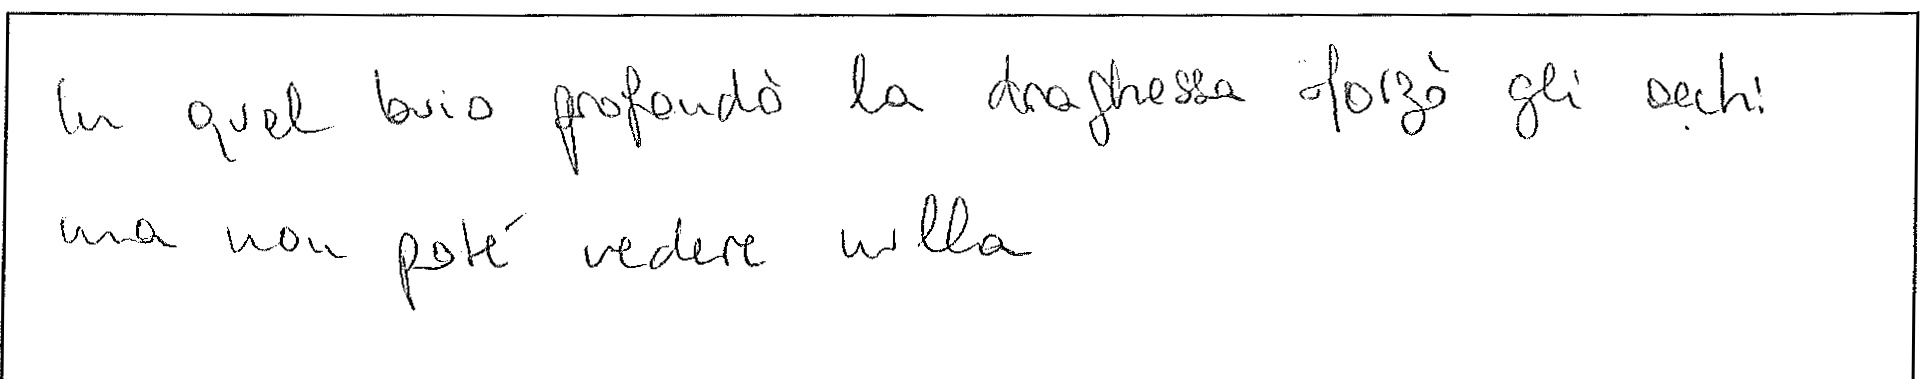 In quel buio profondò la draghessa sforzò gli occhi
ma non poté vedere nulla